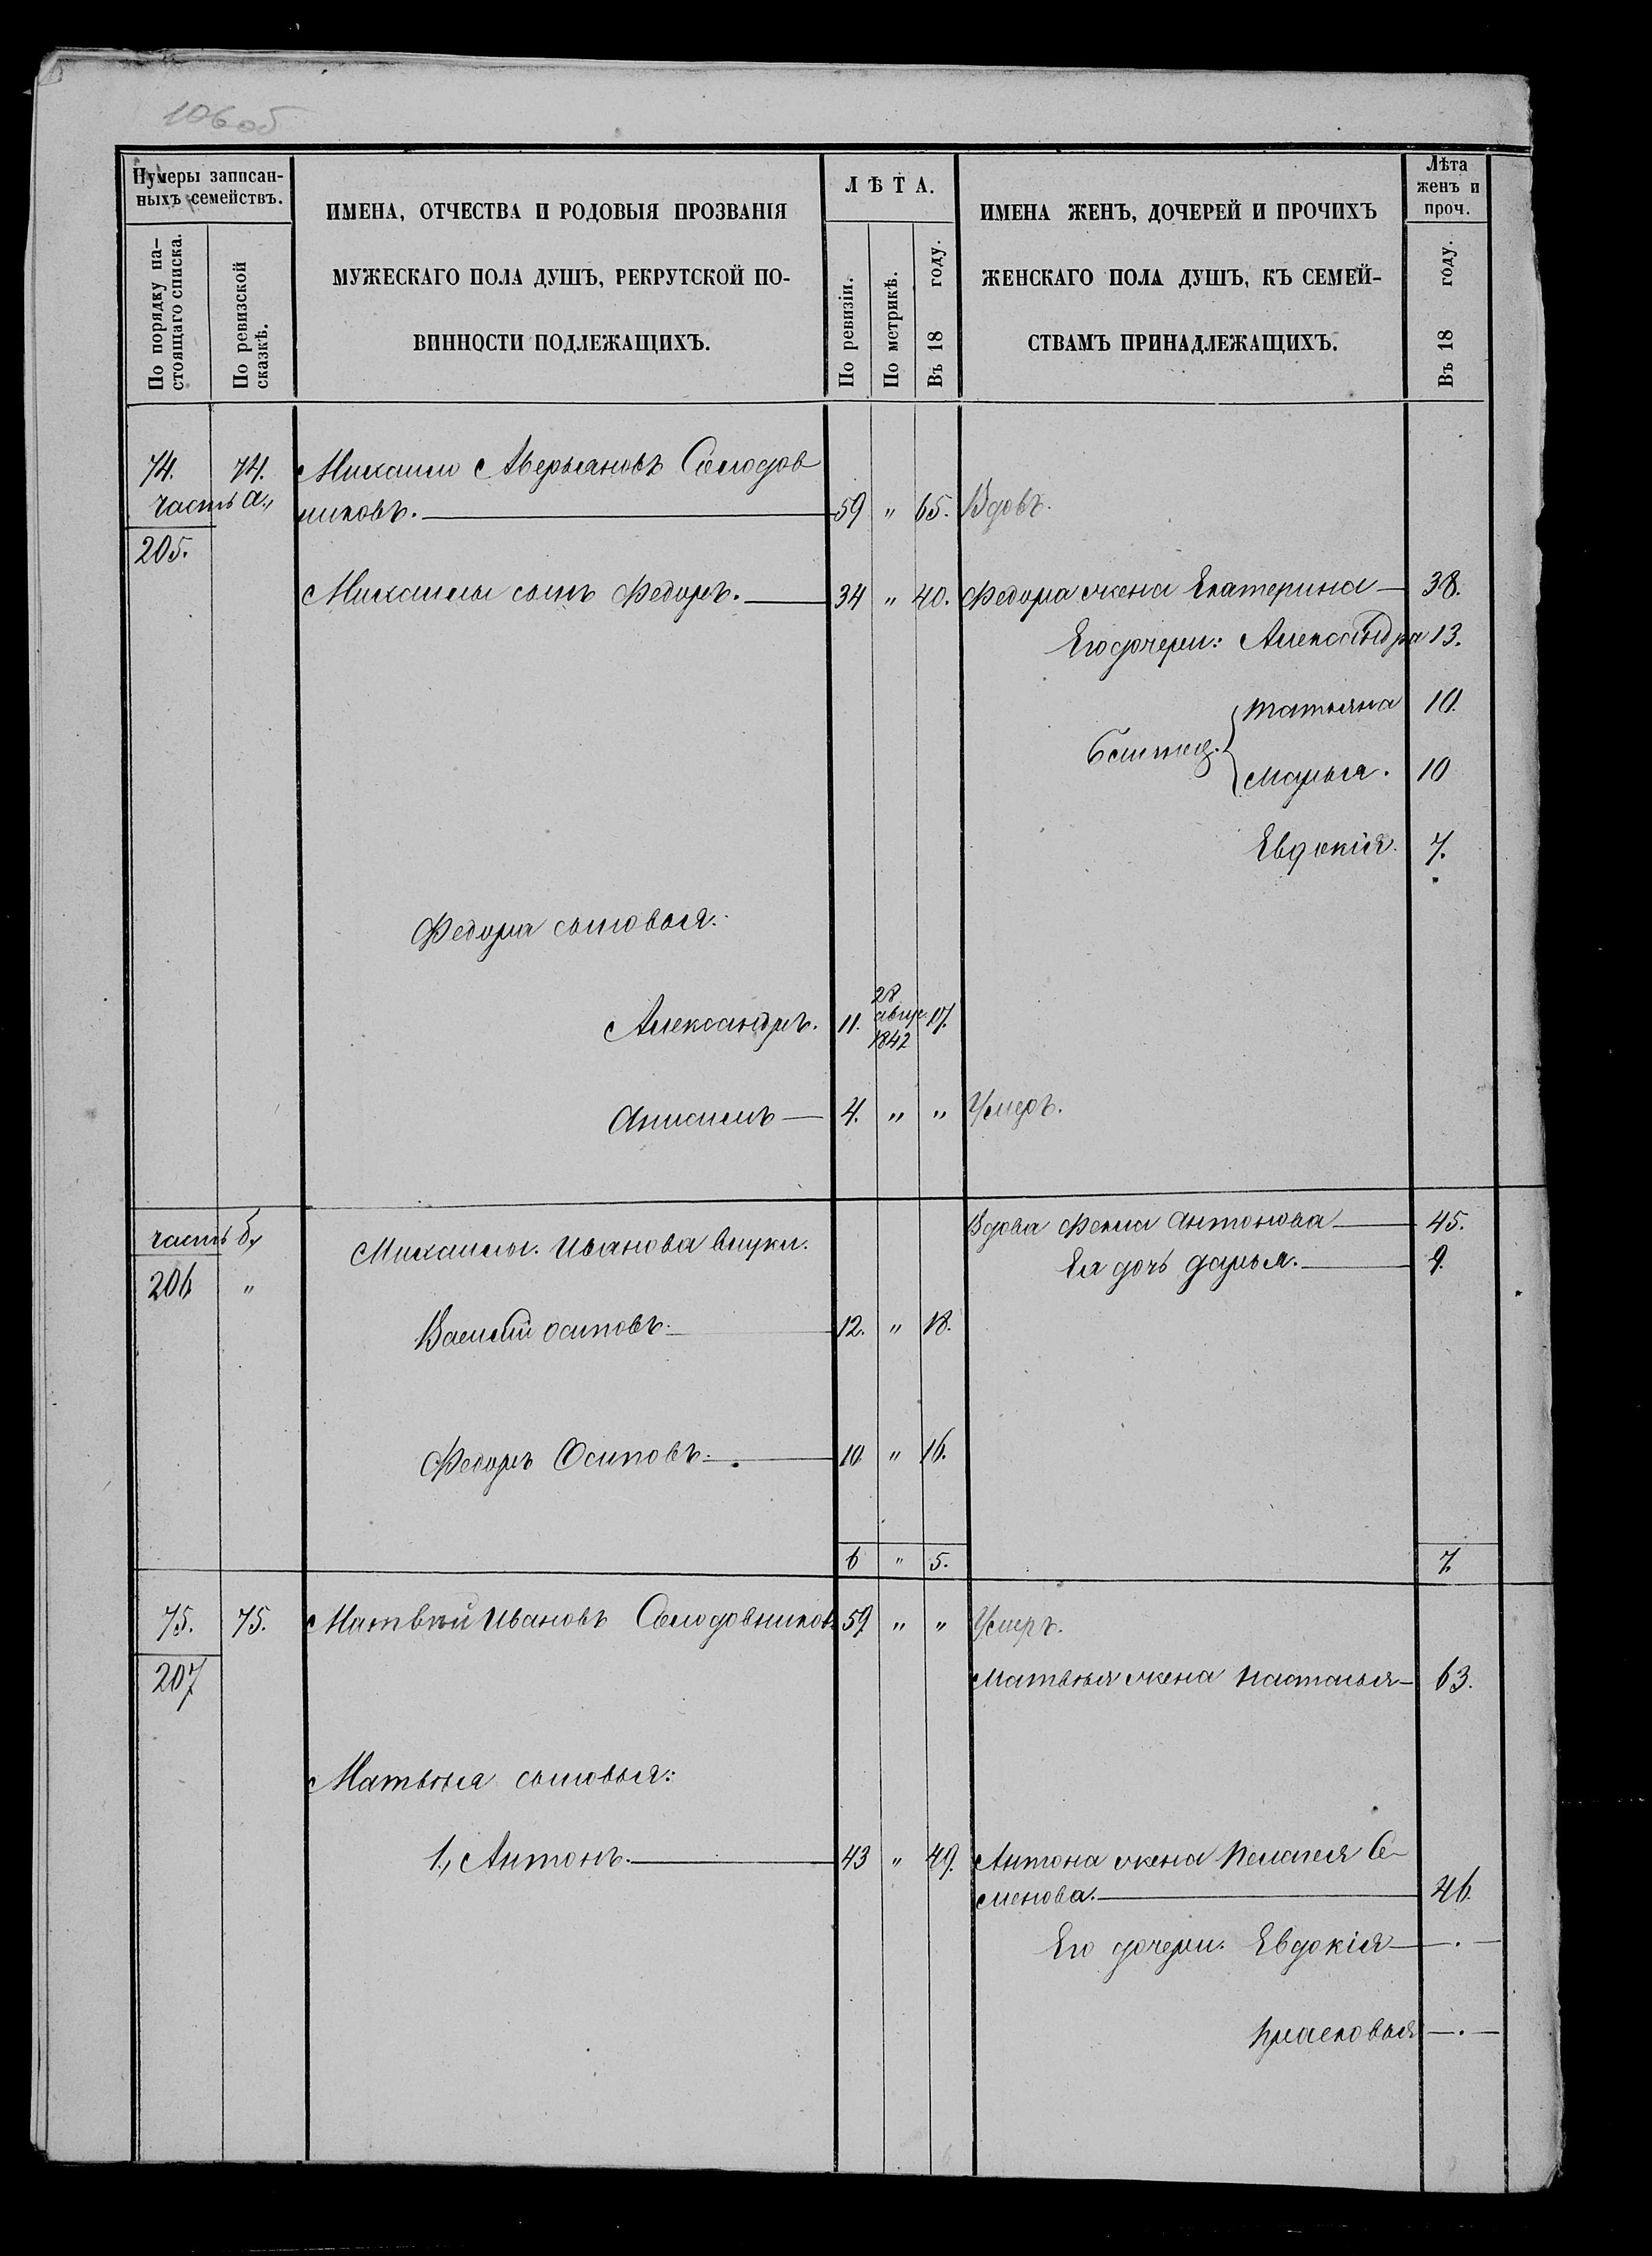 106 об
Нумеры записан-
ныхъ семействъ.
По порядку на-
стоящаго списка.
По ревизской
сказкѣ.
ИМЕНА, ОТЧЕСТВА И РОДОВЫЯ ПРОЗВАНІЯ
МУЖЕСКАГО ПОЛА ДУШЪ, РЕКРУТСКОЙ ПО-
ВИННОСТИ ПОДЛЕЖАЩИХЪ.
ЛѢТА.
По ревизіи.
По метрикѣ.
Въ 18 году.
ИМЕНА ЖЕНЪ, ДОЧЕРЕЙ И ПРОЧИХЪ
ЖЕНСКАГО ПОЛА ДУШЪ, КЪ СЕМЕЙ-
СТВАМЪ ПРИНАДЛЕЖАЩИХЪ.
Лѣта
женъ и
проч.
Въ 18 году.
74. 74. Михаило Аверьяновъ Солодов
часть а., никовъ. 59 " 65. Вдовъ.
205.
Михаилы сынъ Федоръ. 34 " 40. Федора жена Екатерина 38.
Его дочери: Александра 13.
Татьяна 10.
Близнец.
Марья. 10
Евдокія. 7.
Федора сыновья:
28
Александръ. 11. авгус. 17.
1842
Анисимъ 4. " " Умеръ.
часть б., Михаилы. Иванова внуки. Вдова Фекла Антонова 45.
Ея дочь Дарья. 9.
206 "
Василій Осиповъ. 12. " 18.
Федоръ Осиповъ. 10 " 16.
6 " 5. 7.
75. 75. Матвѣй Ивановъ Солодовниковъ 59 " " Умеръ.
207 Матвѣя жена Настасья 63.
Матвѣя сыновья:
1., Антонъ. 43 " 49. Антона жена Пелагея Се-
менова. 46.
Его дочери. Евдокія —.—
Прасковья —.—